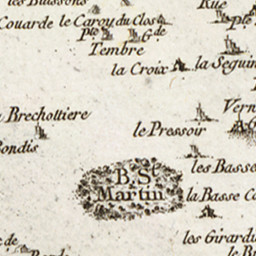 les Buissons
Rue
Couarde le Carou du Clos
Pte Gde Pte
Tembre
la Croix la Seguin
Brechottiere
Vern
le Pressoir
ondis
les Basse
B. St
Martin
la Basse Co
les Girardu
de